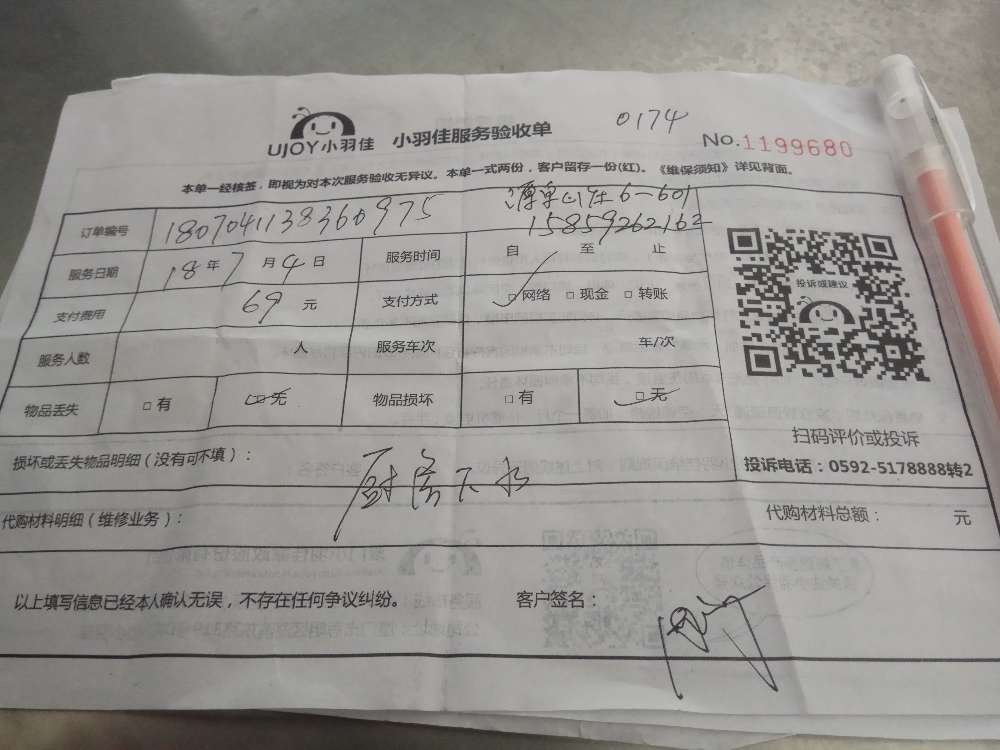 UJOY小羽佳 小羽佳服务验收单 0174
No.1199680
本单一经核签，即视为对本次服务验收无异议。本单一式两份，客户留存一份(红)。《维保须知》详见背面。
6-601
订单编号 1807041138360975 15859262162
服务日期 18年7月4日 服务时间 自 至 止
支付费用 69元 支付方式 □网络 □现金 □转账
服务人数 人 服务车次 年/次
物品丢失 □有 □无 物品损坏 □有 □无
投诉或建议
扫码评价或投诉
投诉电话：0592-5178888转2
损坏或丢失物品明细（没有可不填）：
厨房下水
代购材料明细（维修业务）： 代购材料总额： 元
以上填写信息已经本人确认无误，不存在任何争议纠纷。 客户签名：